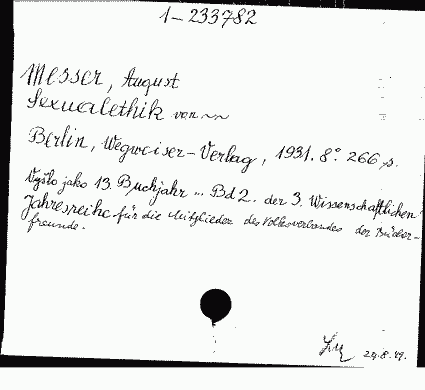 1-233782
Messer, August
Sexualethik von ~~
Berlin, Wegweiser-Verlag, 1931. 8° 266 s.
Vyšlo jako 13. Buchjahr ... Bd 2. der 3. Wissenschaftlichen
Jahresreihe für die Mitglieder des Volksverbandes der Bücher-
freunde.
24.8.49.